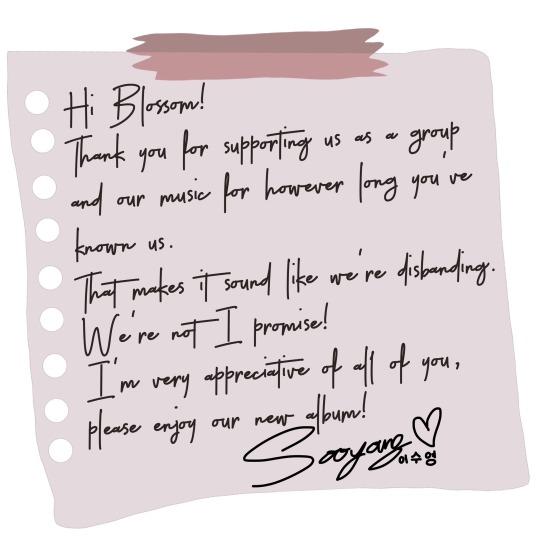 Hi Blossom!
Thank you for supporting us as a group
and our music for however long you've
known us.
That makes it sound like we're disbanding.
We're not I promise!
I'm very appreciative of all of you,
please enjoy our new album!
Sooyoung 이수영